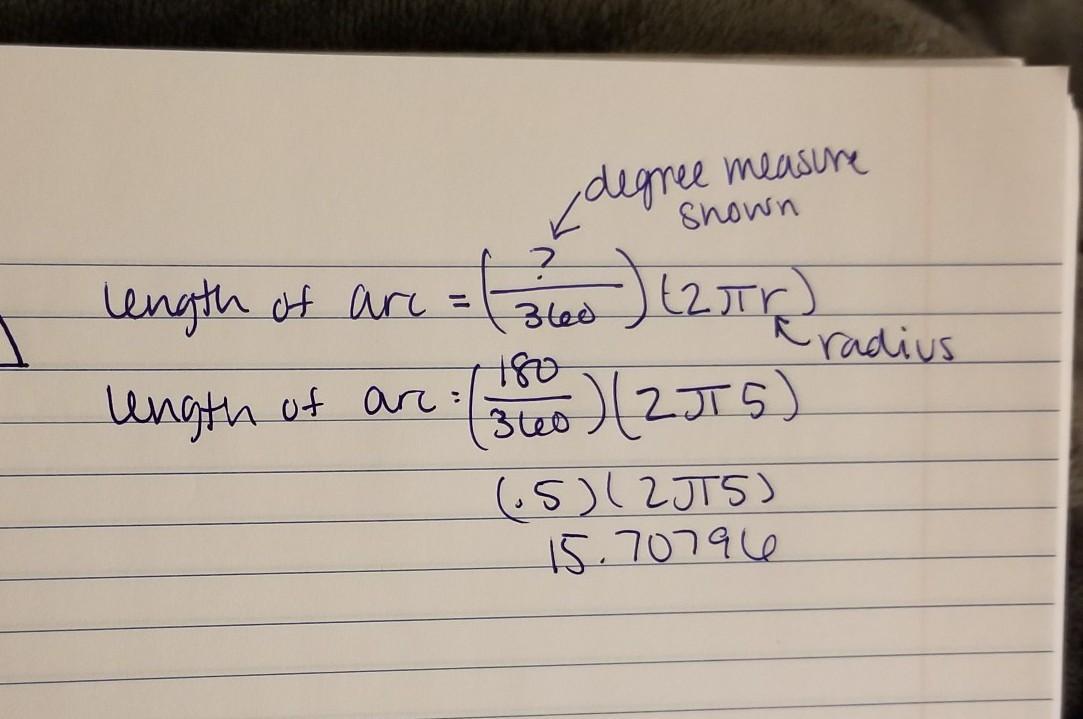 degree measure
shown
length of arc = (?/360)(2πr)
radius
length of arc = (180/360)(2π5)
(.5)(2π5)
15.70796